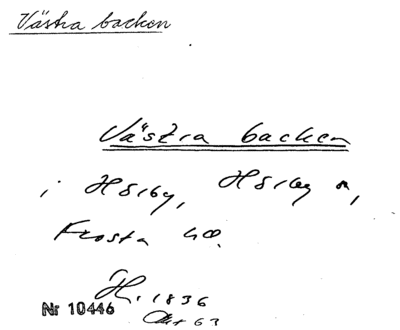 Västra backen
Västra backen
i Hörby, Hörby sn,
Frosta hd.
H. 1836
Nr 10446
Akt 63